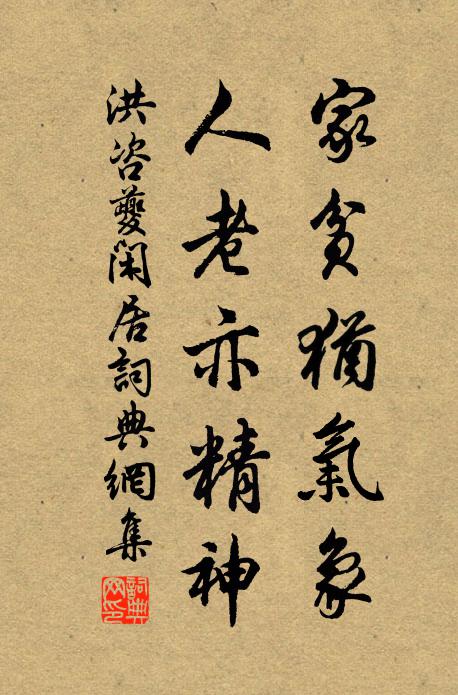 家貧猶氣象
人老亦精神
洪咨夔閑居詞典網集
詞典網印